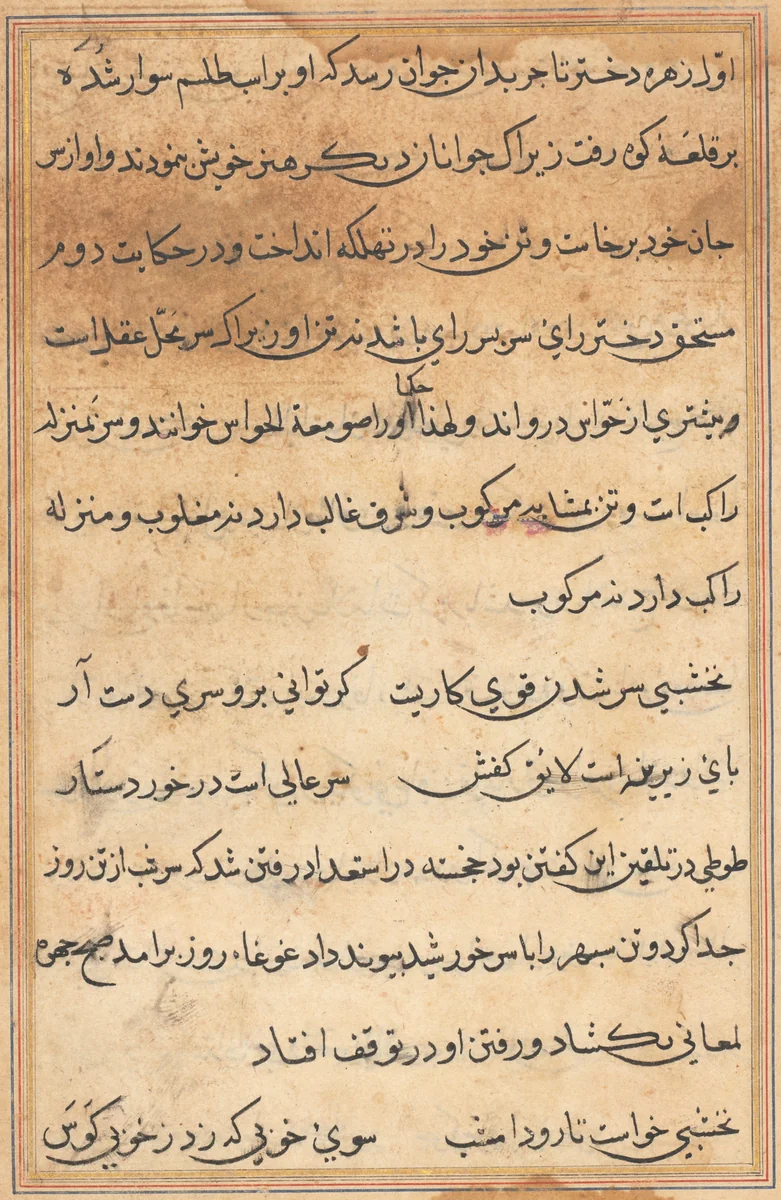 اوّل زهره دختر تاجر بدان جوان رسد که او بر اسب طلسم سوار شُده
بر قلعَهٔ کوه رفت زیراک جوانان دیکر هنر خویش نمودند و او از سر
جان خود برخاست و تن خود را در تهلکه انداخت و در حکایت دوم
مستحق دختر رای سر پسر رای باشد نه تن او زیراکه سر مَحَلّ عقل است
و بیشتری از حَوّاس در واند و لهذا حکما او را صومعة الحواس خوانند و سر بَمنزله
راکب است و تن بمشابه مرکوب و شرف غالب دارد نه مغلوب و منزله
راکب دارد نه مرکوب
نخشبي سر شدن قوي کاریست کر تواني برو سري دست آر
پائ زیرینه است لائق کفش سر عالی است در خور دستَار
طوطي در تلقین این کفتن بود خجسته در استعداد رفتن شد که سر شب از تن روز
جدا کرد و تن سپهر را با سر خورشید پیوند داد غوغاء روز برامد صبح چهره
لمعاني بکشاد و رفتن او در توقف افتاد
نخشبي خواست تا رود امشب سوئ خوبي که زد ز خوبي کَوَسَ